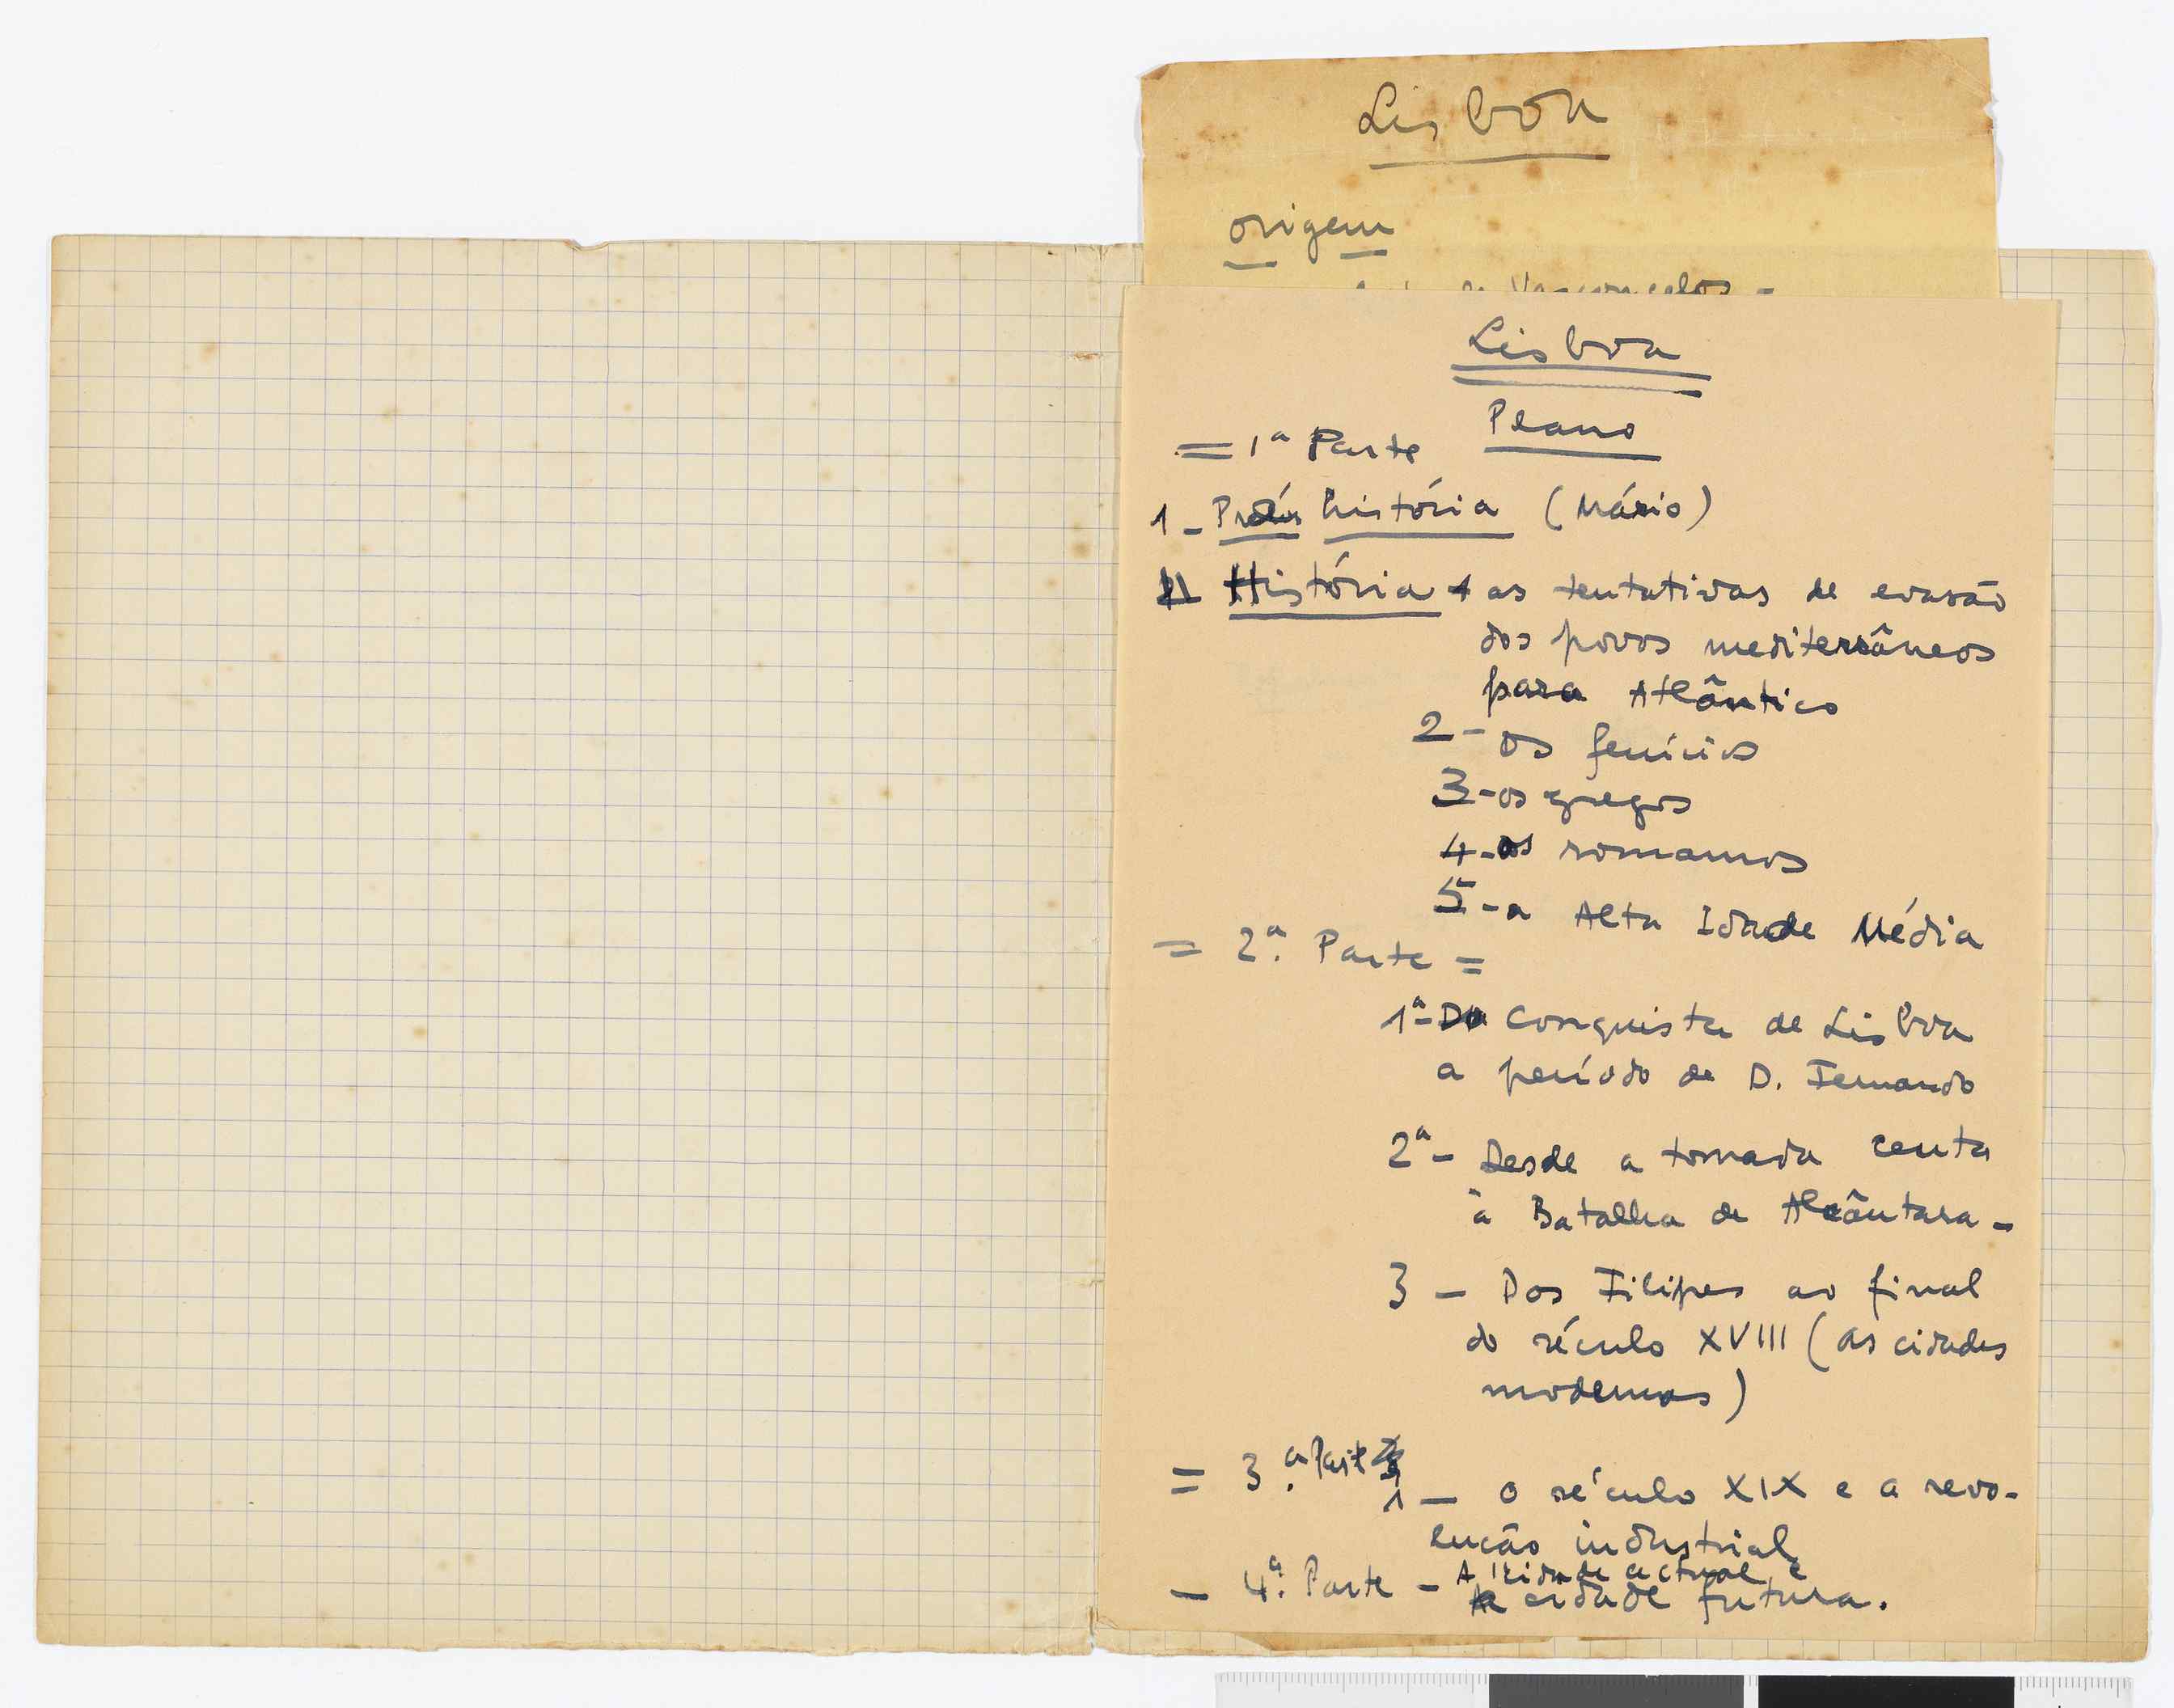 Lisboa
origem
Vasconcelos -
Lisboa
Plano
= 1ª Parte
1 - história (Mário)
II História 1 as tentativas de evasão
dos povos mediterrâneos
para Atlântico
2 - os fenícios
3 - os gregos
4 - os romanos
5 - a Alta Idade Média
= 2.ª Parte =
1ª - Da conquista de Lisboa
a período de D. Fernando
2ª - Desde a tomada Ceuta
à Batalha de Alcântara -
3 - Dos Filipes ao final
do século XVIII (as cidades
modernas)
= 3.ª Parte
1 - O século XIX e a revo-
lução industrial
- 4.ª Parte - A cidade actual e
a cidade futura.